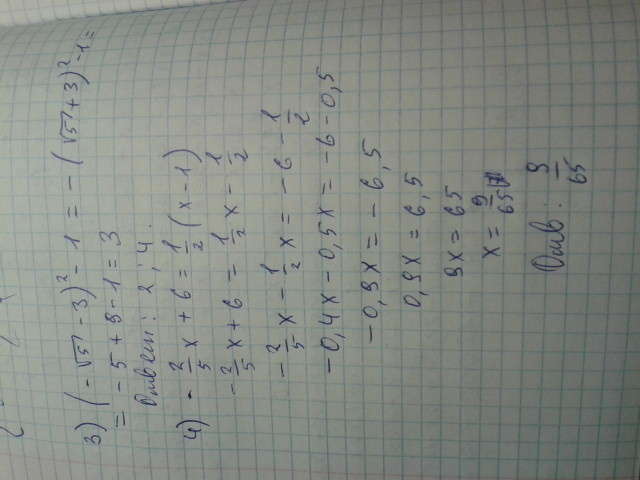 3) (-√5 - 3)² - 1 = - (√5 + 3)² - 1 =
= - 5 + 9 - 1 = 3
Ответ: 2; 4.
4) - 2/5 x + 6 = 1/2 (x - 1)
- 2/5 x + 6 = 1/2 x - 1/2
- 2/5 x - 1/2 x = - 6 - 1/2
- 0,4x - 0,5x = - 6 - 0,5
- 0,9x = - 6,5
0,9x = 6,5
9x = 65
x = 9/65
Отв: 9/65